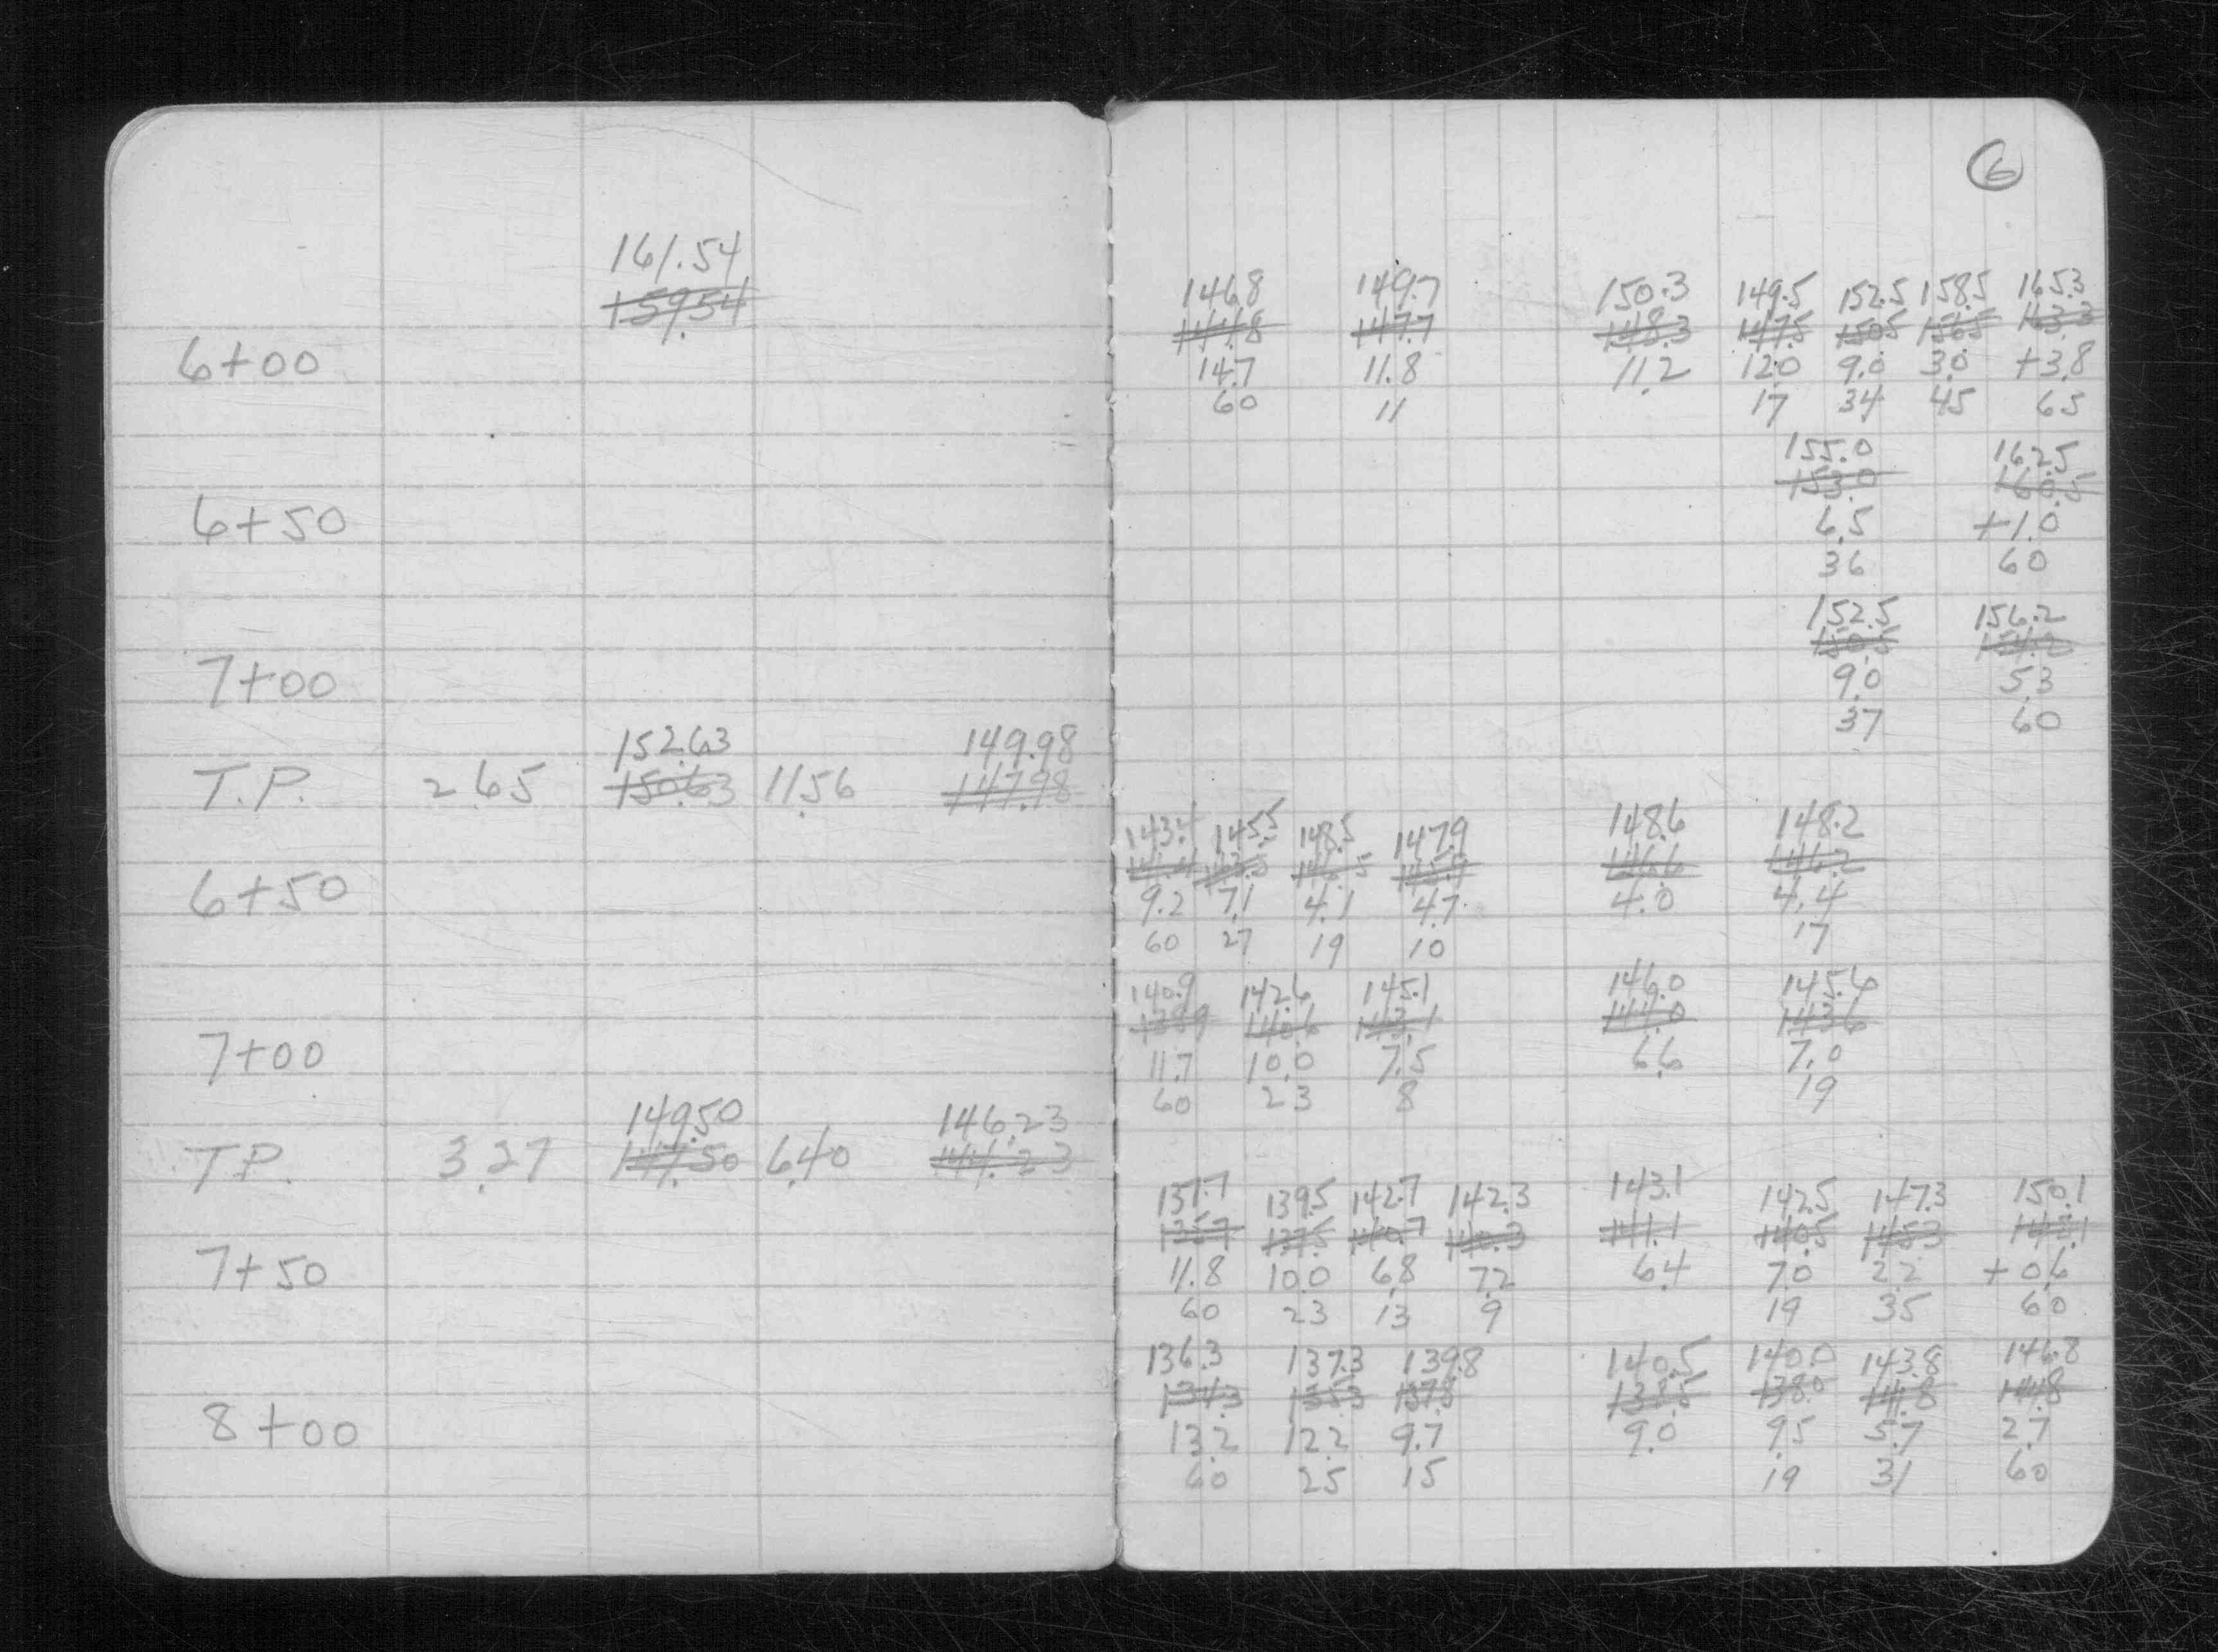 6
161.54
159.54
146.8 149.7 150.3 149.5 152.5 158.5 165.3
144.8 147.7 148.3 147.5 150.5 156.5 163.3
6+00 14.7 11.8 11.2 12.0 9.0 3.0 +3.8
60 11 17 34 45 65
155.0 162.5
153.0 160.5
6+50 6.5 +1.0
36 60
152.5 156.2
150.5 154.2
7+00 9.0 5.3
37 60
152.63 149.98
T.P. 2.65 150.63 11.56 147.98
143.4 145.5 148.5 147.9 148.6 148.2
141.4 143.5 146.5 145.9 146.6 146.2
6+50 9.2 7.1 4.1 4.7 4.0 4.4
60 27 19 10 17
140.9 142.6 145.1 146.0 145.6
138.9 140.6 143.1 144.0 143.6
7+00 11.7 10.0 7.5 6.6 7.0
60 23 8 19
149.50 146.23
T.P. 3.27 147.50 6.40 144.23
137.7 139.5 142.7 142.3 143.1 142.5 147.3 150.1
135.7 137.5 140.7 140.3 141.1 140.5 145.3 148.1
7+50 11.8 10.0 6.8 7.2 6.4 7.0 2.2 +0.6
60 23 13 9 19 35 60
136.3 137.3 139.8 140.5 140.0 143.8 146.8
134.3 135.3 137.8 138.5 138.0 141.8 144.8
8+00 13.2 12.2 9.7 9.0 9.5 5.7 2.7
60 25 15 19 31 60